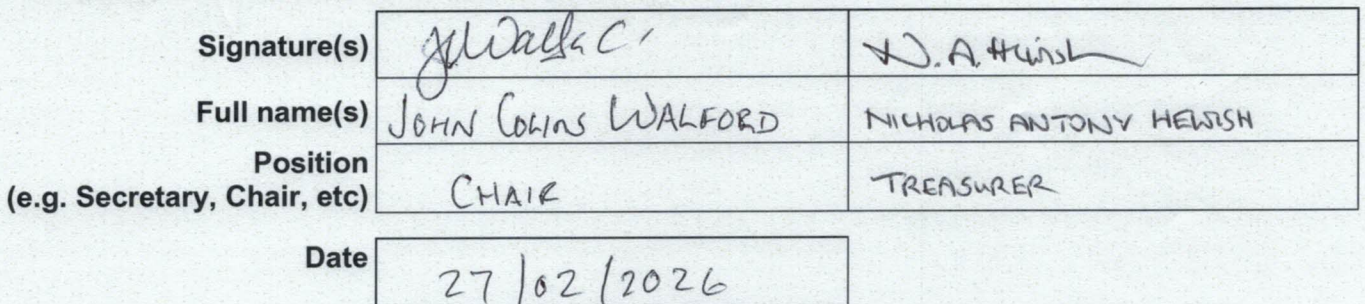 Signature(s) N.A. Hewish
Full name(s) JOHN COLINS WALFORD NICHOLAS ANTONY HEWISH
Position
(e.g. Secretary, Chair, etc) CHAIR TREASURER
Date 27/02/2026